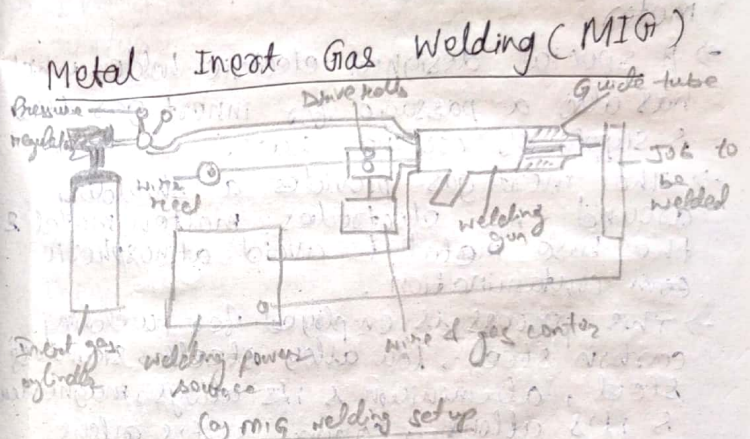 Metal Inert Gas Welding (MIG)
Pressure
regulator
Drive rolls
Guide tube
wire
reel
Job to
be
welded
welding
gun
Inert gas
cylinder
welding power
source
wire & gas contor
(a) MIG welding setup